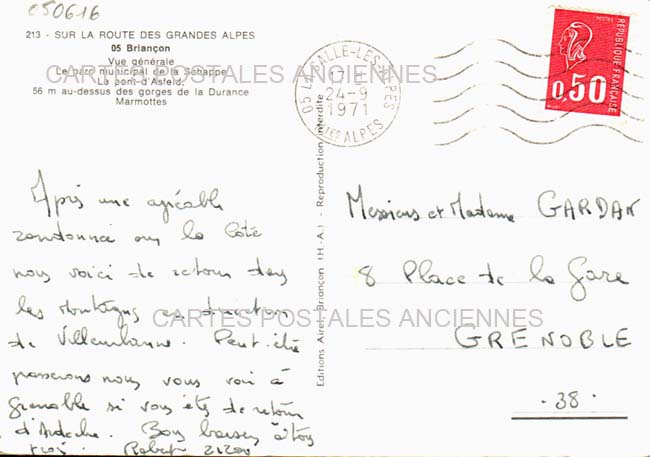 c50616
213 - SUR LA ROUTE DES GRANDES ALPES
05 Briançon
Vue générale
Le parc municipal de la Schappe
Le pont d'Asfeld,
56 m au-dessus des gorges de la Durance
Marmottes
CARTES POSTALES ANCIENNES
05 LA SALLE-LES-ALPES
24-9
1971
HTES ALPES
POSTES
REPUBLIQUE FRANÇAISE
0,50
Editions Airel, Briançon (H.-A.) - Reproduction interdite
Après une agréable
randonnée sur la Côte
nous voici de retour dans
les Montagnes en direction
de Villeurbanne. Peut-être
passerons nous vous voir à
Grenoble si vous êtes de retour
d'Ardèche. Bons baisers à tous
trois. Robert
Messieurs et Madame GARDAK
8 Place de la Gare
CARTES POSTALES ANCIENNES
GRENOBLE
- 38 -